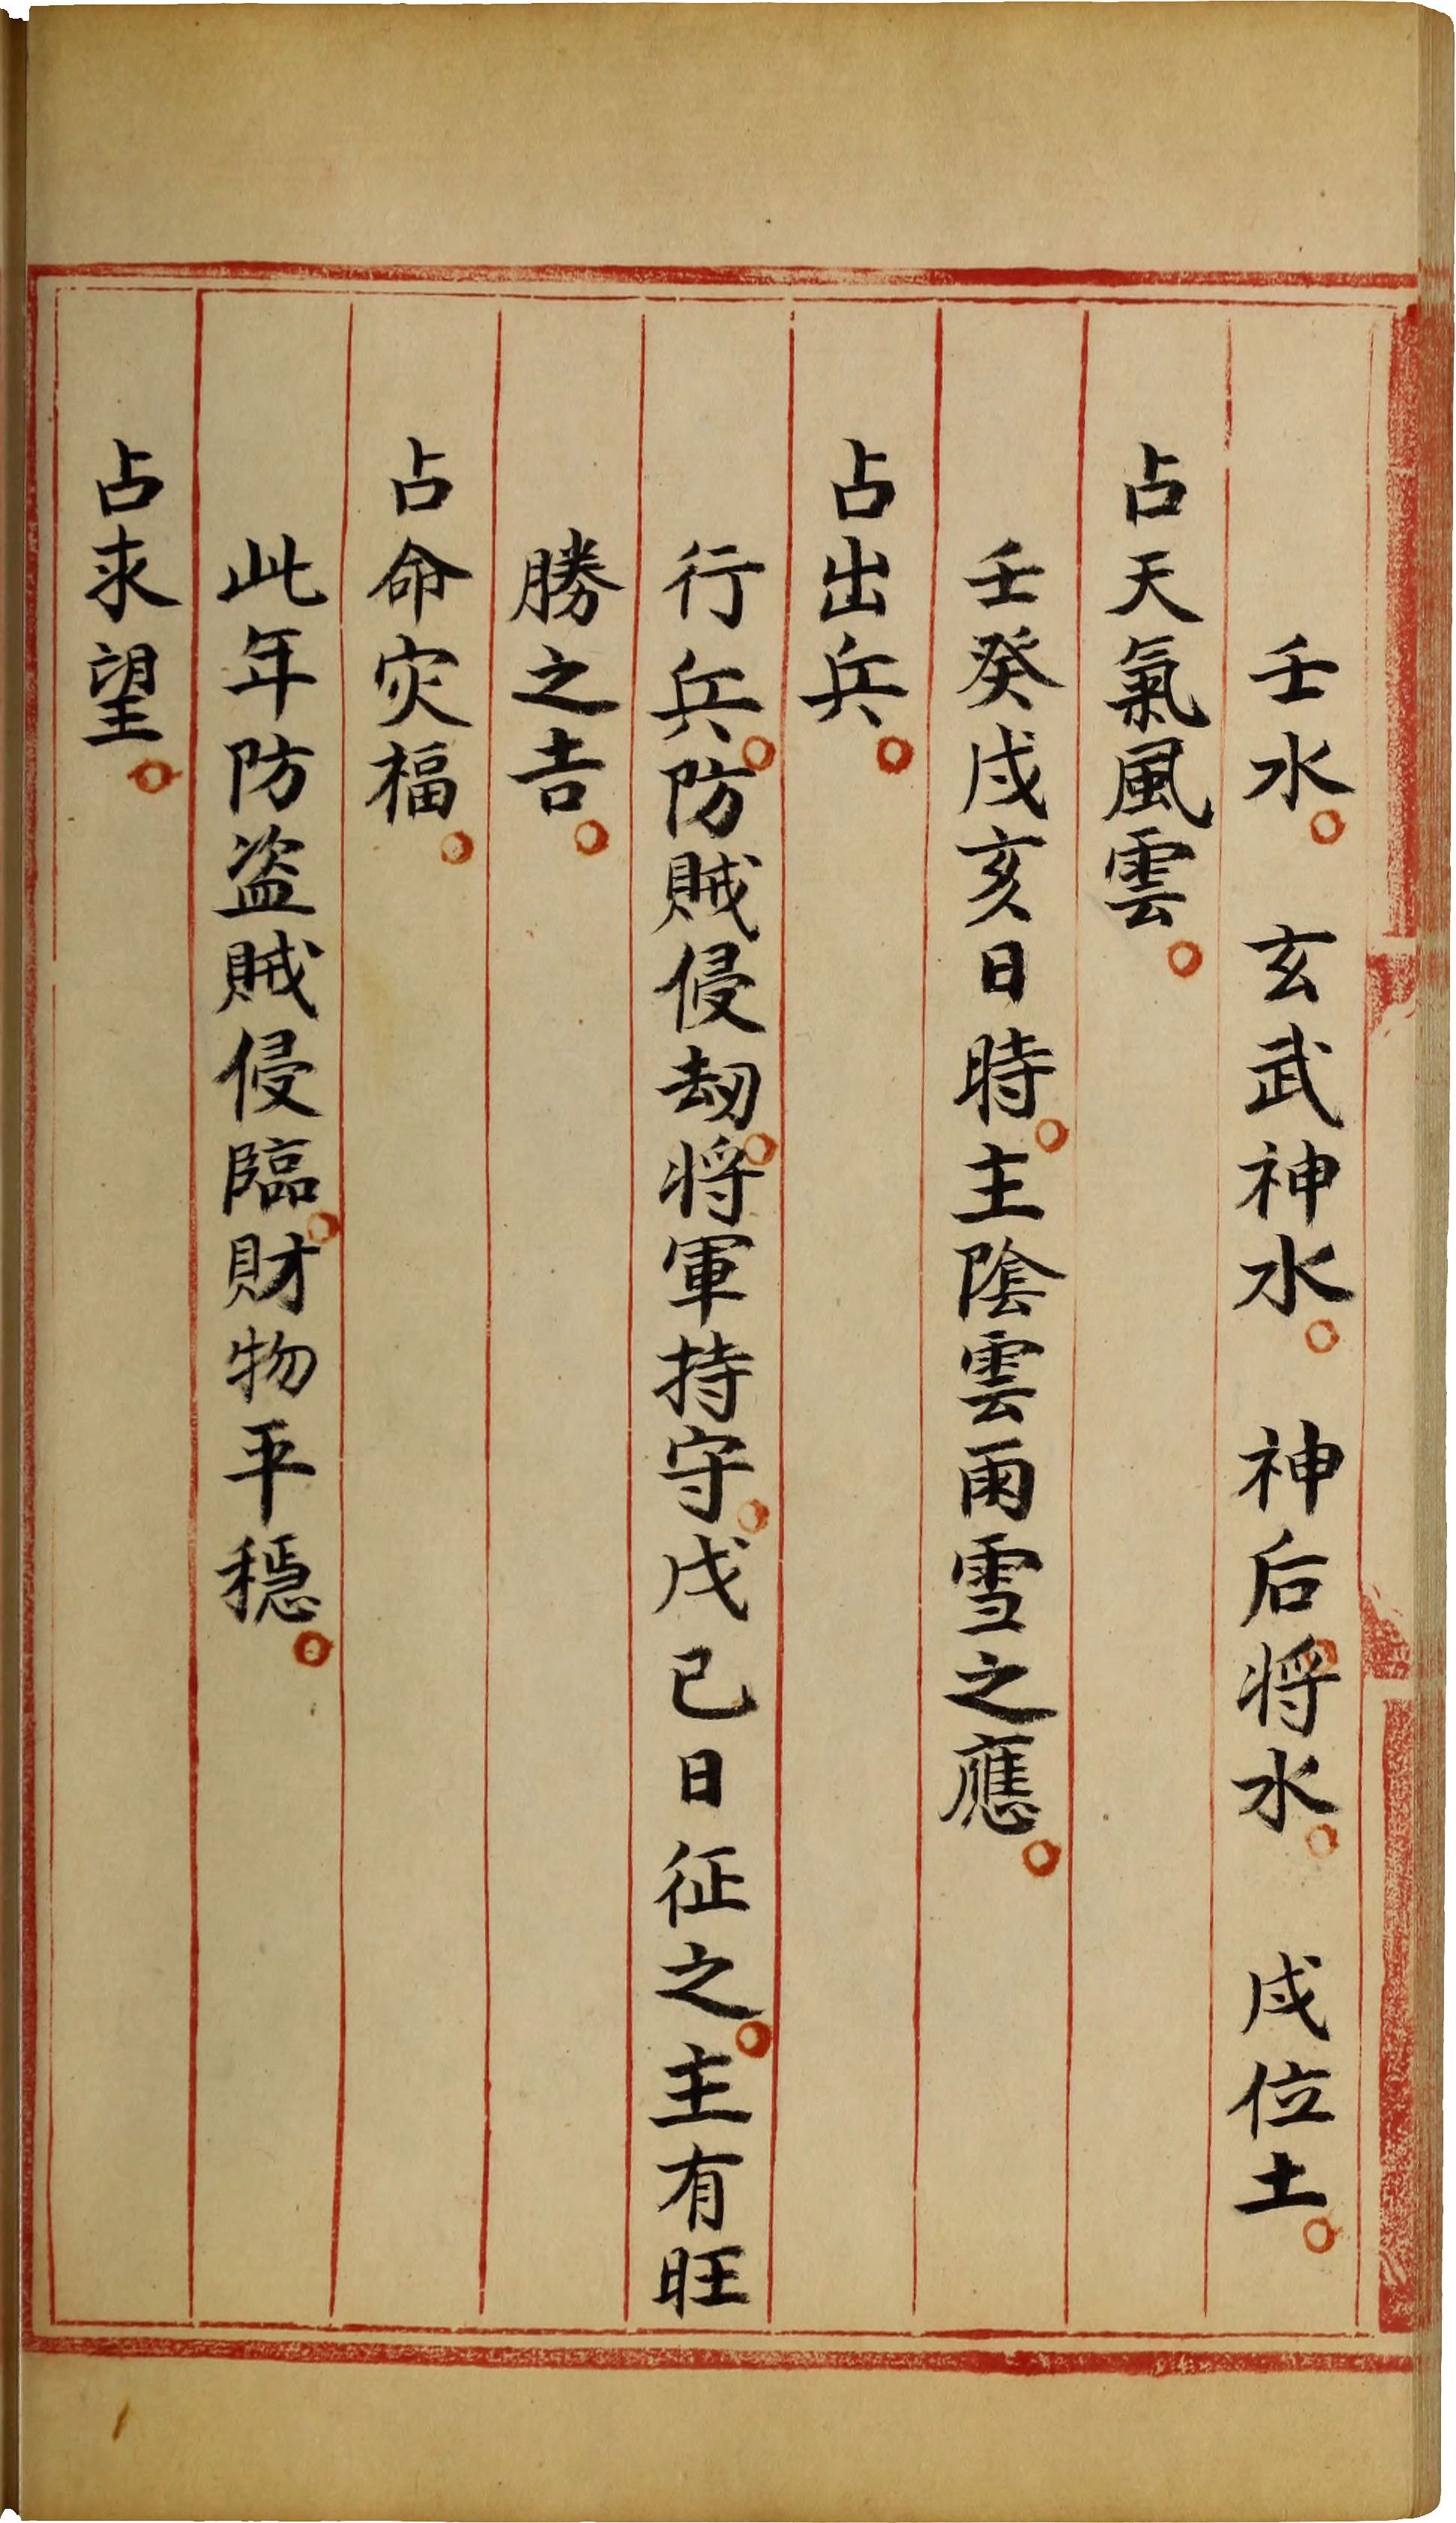 壬水。　玄武神水。　神后将水。　戌位土。
占天氣風雲。
壬癸戌亥日時。主陰雲雨雪之應。
占出兵。
行兵。防賊侵刼。将軍持守。戊己日征之。主有旺
勝之吉。
占命灾福。
此年防盗賊侵臨。財物平穏。
占求望。